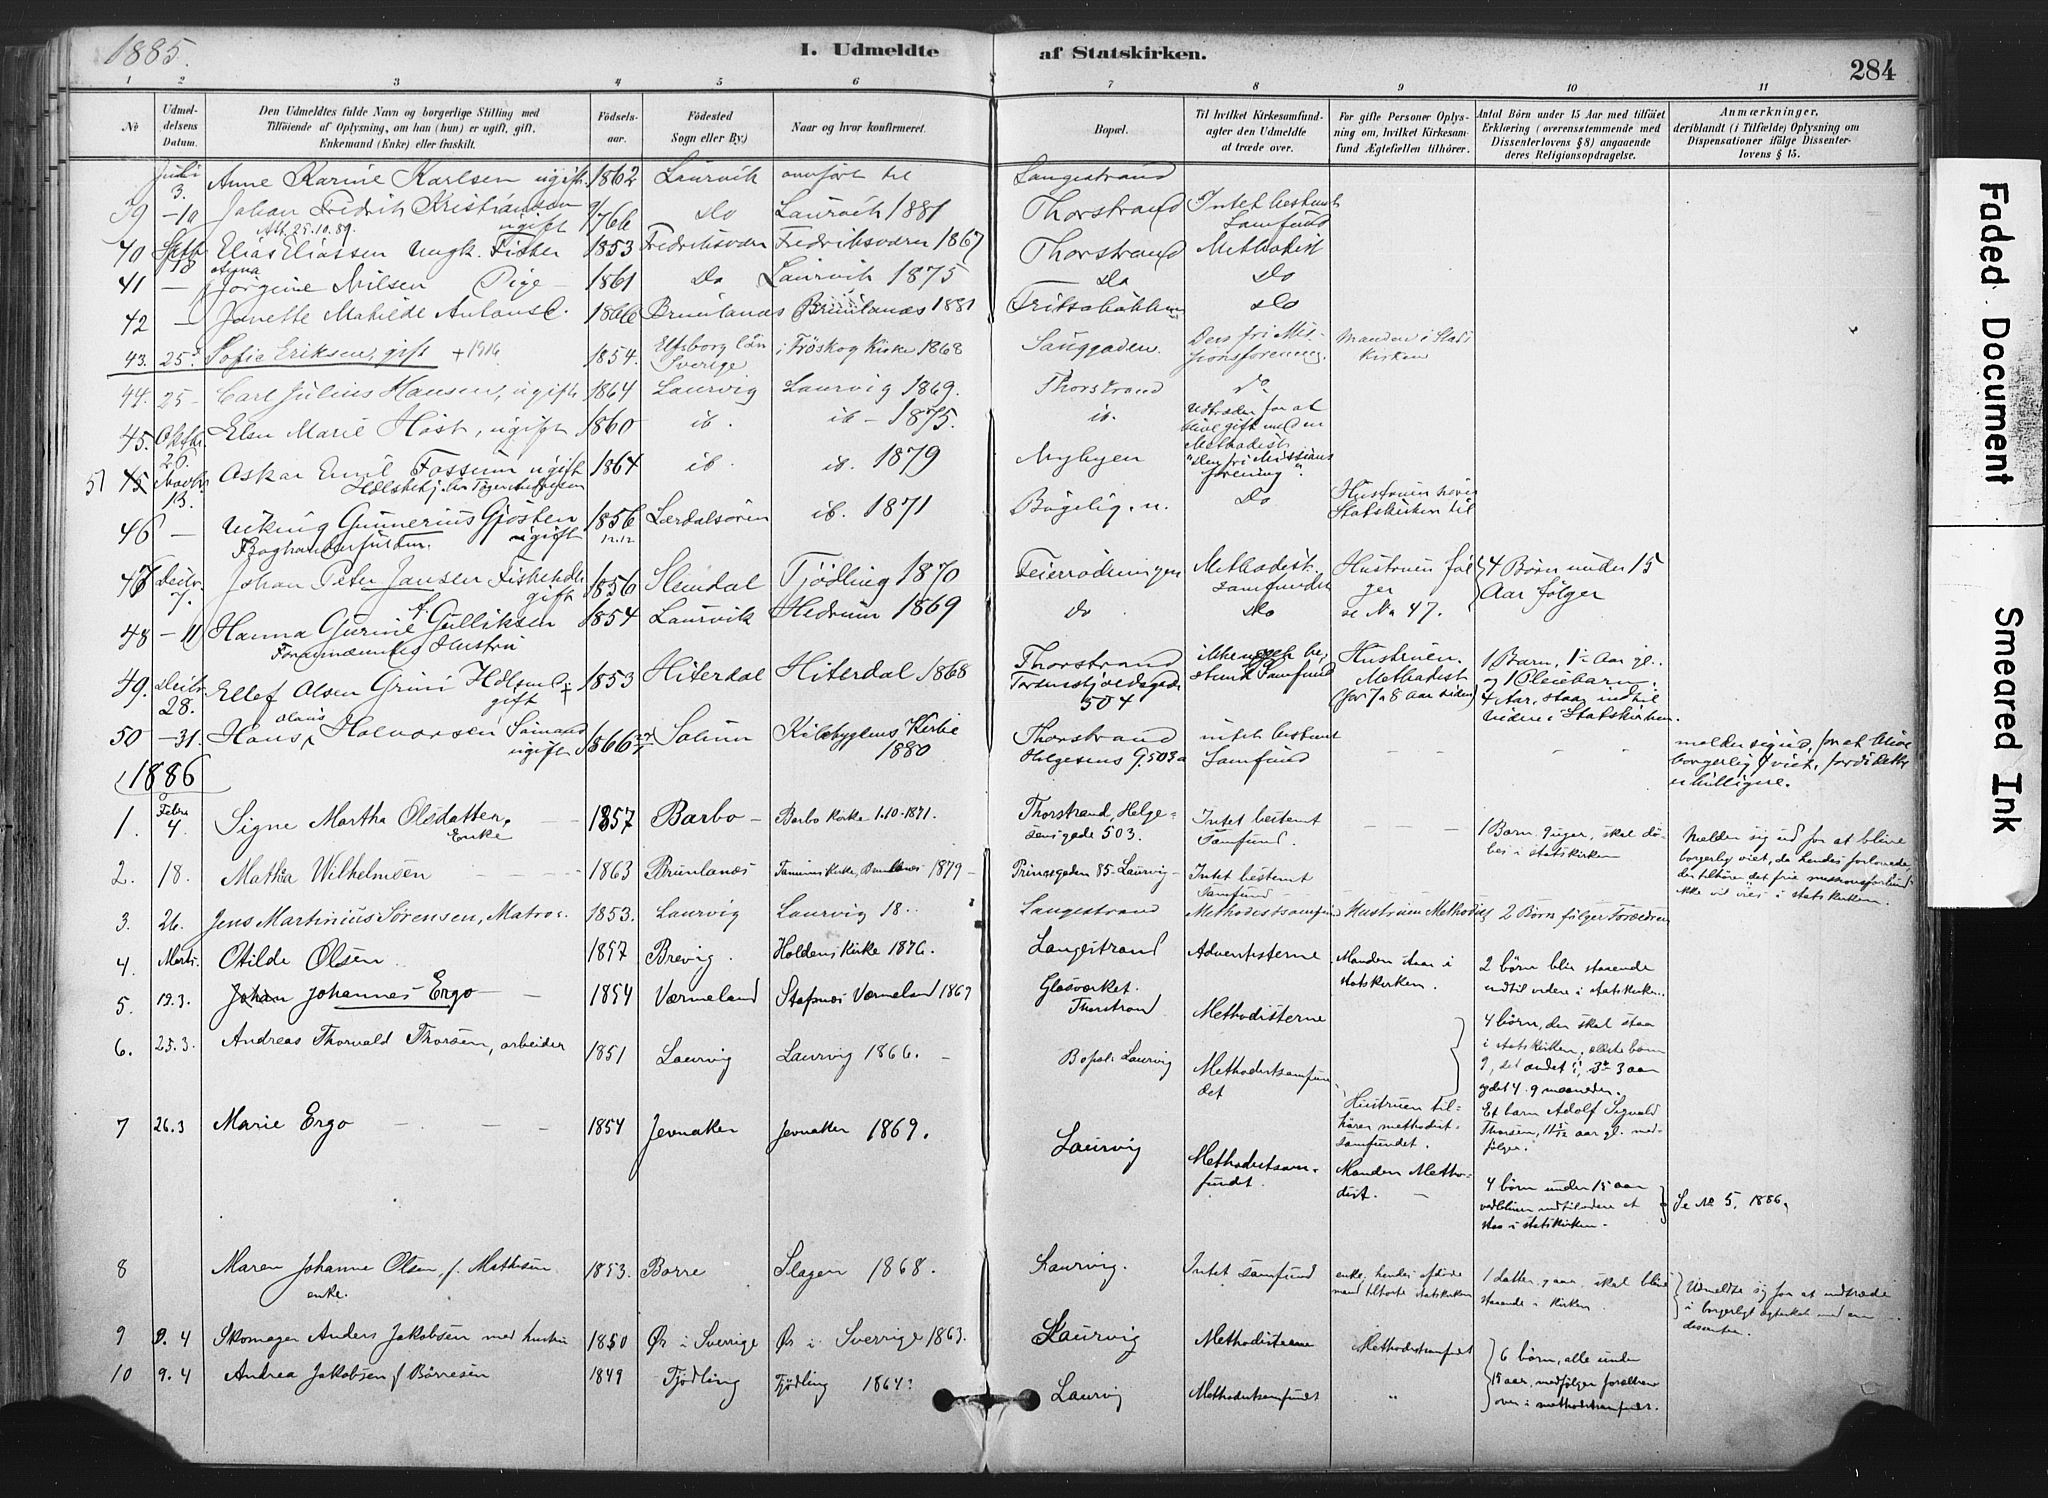 1885.
I. Udmeldte af Statskirken.
284
1 2 3 4 5 6 7 8 9 10 11
No
Udmel-
delsens
Datum.
Den Udmeldtes fulde Navn og borgerlige Stilling med
Tilføiende af Oplysning, om han (hun) er ugift, gift.
Enkemand (Enke) eller fraskilt.
Fødsels-
aar.
Fødested
Sogn eller By.)
Naar og hvor konfirmeret.
Bopæl.
Til hvilket Kirkesamfund-
agter den Udmeldte
at træde over.
For gifte Personer Oplys-
ning om, hvilket Kirkesam-
fund Ægtefællen tilhører.
Antal Börn under 15 Aar med tilföiet
Erklæring (overensstemmende med
Dissenterlovens § 8) angaaende
deres Religionsopdragelse.
Anmærkninger,
deriblandt (i Tilfælde) Oplysning om
Dispensationer ifølge Dissenter-
lovens § 15.
Juli 3. Anne Karine Karlsen ugift. 1862 Laurvik Langestrand
39 -10 Johan Fredrik Kristiansen ugift 9/7 66 Do Laurvik 1881 Thorstrand Intet bestemt Samfund
Att. 25.10.89.
40 Septb 18 Elias Eliassen Ungk. Fisker 1853 Fredriksværn Fredriksværn 1867 Thorstrand Methodist
41 — Anna Jørgine Nilsen Pige — 1861 Do Laurvik 1875 Do Do
42 — Janette Mathilde Antons D. 1866 Brunlanæs Brunlanæs 1881 Do
43. 25. Sofie Eriksen, gift + 1916 1854. Elfsborg Län Sverige i Fröskog Kirke 1868 Den fri Mis- Manden i Stats Kirken
44. 25 - Carl Julius Hansen, ugift 1864 Laurvig Laurvig 1869. Thorstrand do
45. Oktbr 26. Elen Marie Høst, ugift 1860 ib. ib - 1875. ib. Udtræder for at blive gift med en Methodist
51 45 Novbr 13. Oskar Emil Fossum ugift 1864 ib. ib. 1879 Nybyen "Den fri Missions forening".
46 — Viking Gunnerius Gjosten ugift 1856 12.12 Lærdalsören ib. 1871 Do Hustruen Statskirken til
47 Decbr 7. Johan Peter Jansen gift 1856 Tjödling 1870 Methodist. Samfundet Hustruen föl ger 4 Børn under 15 Aar følger
48 - 11 Hanna Gurine f. Gulliksen 1854 Laurvik Hedrum 1869 Do Do se No 47.
Hustru
49. Decbr. 28. Ellef Olsen Grini gift 1853 Hiterdal Hiterdal 1868 Thorstrand Tordenskjoldsgade 504 be stemt Samfund Hustruen. Methodist (for 7 a 8 aar siden) 1 Barn, 1½ Aar gl. og 1 Pleiebarn. 4 Aar, staar indtil videre i Statskirken.
50 -31. Hans Olaus Halvorsen Sömand ugift 1866 Solum Kilebygdens Kirke 1880 Thorstrand Helgesens G. 503a intet bestemt Samfund - - - - melder sig ud, for at blive borgerlig viet, fordi dette er billigere.
1886
1. Febr 4. Signe Martha Olsdatter, Enke 1857 Barbo - Barbo Kirke 1-10-1871. Thorstrand, Helge- sensgade 503. Intet bestemt Samfund. - - - 1 Barn, 9 uger, skal dø- bes i statskirken Melder sig ud for at blive borgerlig viet, da hendes forlovede, der tilhører det frie missionsforbund ikke vil vies i statskirken.
2. 18. Mathea Wilhelmsen - - - 1863 Brunlanæs Tanums Kirke, Brunlanæs 1879 - Prinsegaden 85 - Laurvig - Intet bestemt Samfund - - -
3. 26. Jens Martinius Sörensen, Matros. 1853. Laurvig Laurvig 18 . Langestrand Methodistsamfund Hustruen Methodist 2 Börn følger Forældrene
4. Marts. Otilde Olsen 1857 Brevig. Holdens Kirke 1876. Langestrand Adventisterne Manden staar i statskirken. 2 børn blir staaende indtil videre i statskirken.
5. 19.3. Johan Johannes Ergo — — 1854 Værmeland Værmeland 1869 Glasværket. Thorstrand Methodisterne 4 børn, der skal staa i statskirken, ældste barn 9, det andet 3die 3 aar og det 4. 9 maaneder.
6. 25.3. Andreas Thorvald Thorsen, arbeider 1851 Laurvig Laurvig 1866. - Bopæl: Laurvig Methodistsamfun det Hustruen til- hører methodist- samfundet. Et barn Adolf Sigvald Thorsen, aar gl. med- følger.
7 26.3 Marie Ergo — — — 1854 Jevnaker Jevnaker 1869. Laurvig Methodistsam- fundet. Manden Metho- dist. - 4 børn under 15 aar indtilvidere at staa i statskirken. Se No 5, 1886.
8 Maren Johanne Olsen, f. Mathisen enke. 1853. Borre Slagen 1868. Laurvig. Intet samfund enke, hendes afdøde mand tilhørte statskirken 1 datter, 9 aar, skal blive staaende i Kirken. Udmeldte sig for at indtræde i borgerligt ægteskab med en dissenter.
9 9.4 Skomager Anders Jakobsen med hustru 1850 Ør i Sverrige Ør i Sverrige 1863. Laurvig Methodisterne Methodistsamfundet 6 børn, alle under 15 aar, medfølger forældrene over i methodistsamfundet.
10 9.4 Andrea Jakobsen f Børresen 1849 Tjødling Tjødling 1864. Laurvig Methodistsamfundet "
Faded Document
Smeared Ink